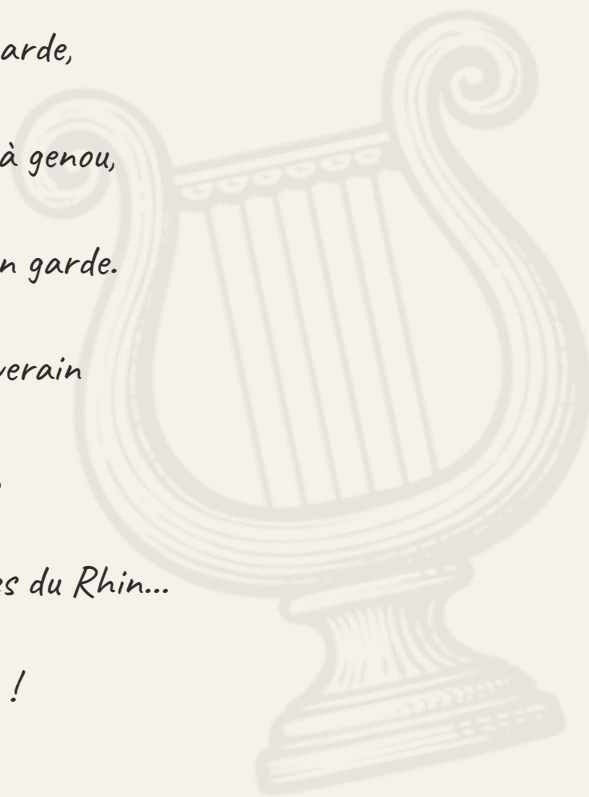 arde,
à genou,
n garde.
verain
es du Rhin...
!